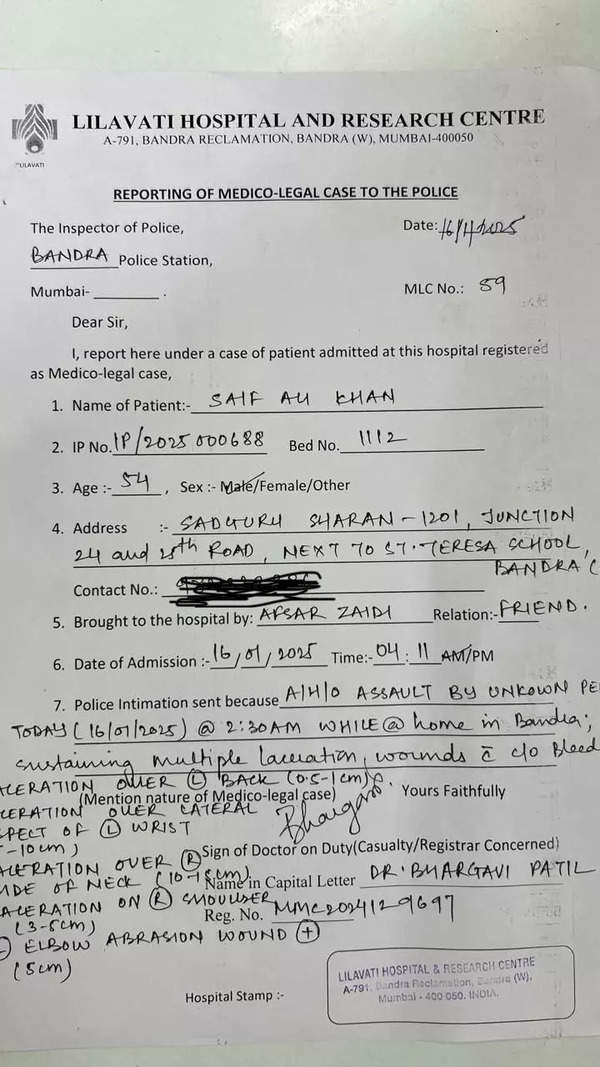 LILAVATI HOSPITAL AND RESEARCH CENTRE
A-791, BANDRA RECLAMATION, BANDRA (W), MUMBAI-400050
LILAVATI
REPORTING OF MEDICO-LEGAL CASE TO THE POLICE
The Inspector of Police, Date: 16/1/2025
BANDRA Police Station,
Mumbai- ________ . MLC No.: 59
Dear Sir,
I, report here under a case of patient admitted at this hospital registered
as Medico-legal case,
1. Name of Patient:- SAIF ALI KHAN
2. IP No. IP/2025000688 Bed No. 1112
3. Age :- 54 , Sex :- Male/Female/Other
4. Address :- SADGURU SHARAN - 1201, JUNCTION
24 and 28th ROAD, NEXT TO ST. TERESA SCHOOL,
BANDRA (
Contact No.:
5. Brought to the hospital by: AFSAR ZAIDI Relation:- FRIEND.
6. Date of Admission :- 16/01/2025 Time:- 04:11 AM/PM
7. Police Intimation sent because A/H/O ASSAULT BY UNKOWN PE
TODAY (16/01/2025) @ 2:30AM WHILE @ home in Bandra;
sustaining multiple laceration, wounds c̄ c/o Bleed
ACERATION OVER (L) BACK (0.5-1cm)
(Mention nature of Medico-legal case) Yours Faithfully
CERATION OVER LATERAL
SPECT OF (L) WRIST
-10cm)
Sign of Doctor on Duty(Casualty/Registrar Concerned)
ACERATION OVER (R)
IDE OF NECK (10-15cm)
Name in Capital Letter DR. BHARGAVI PATIL
ACERATION ON (R) SHOULDER
(3-5cm) Reg. No. MMC2024129697
ELBOW ABRASION WOUND (+)
(5cm)
Hospital Stamp :-
LILAVATI HOSPITAL & RESEARCH CENTRE
A-791, Bandra Reclamation, Bandra (W),
Mumbai - 400 050. INDIA.